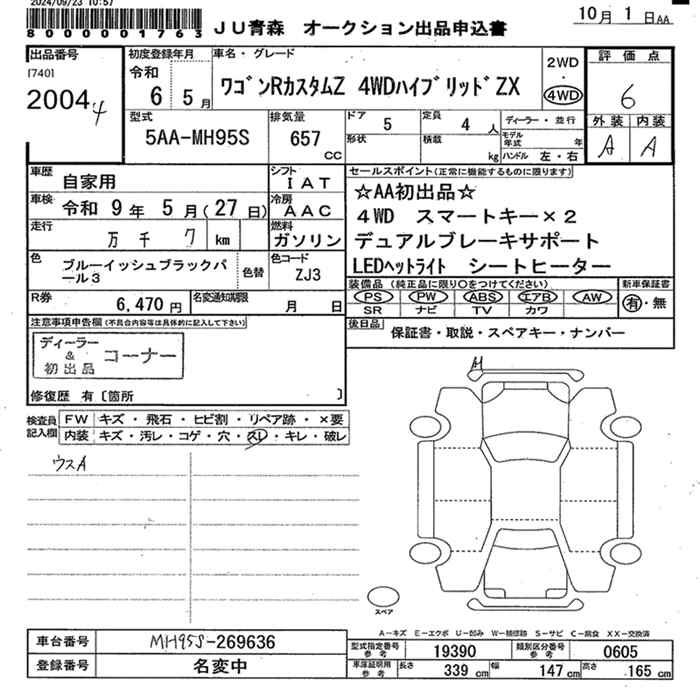 2024/09/23 10:57
8000001763
JU青森 オークション出品申込書
10月 1日AA
出品番号
[740]
2004 4
初度登録年月
令和
6 5月
車名・グレード
ワゴンRカスタムZ 4WDハイブリッドZX
2WD
・
4WD
評価点
6
外装 内装
A A
型式
5AA-MH95S
排気量
657
CC
ドア
5
形状
定員
4 人
積載
kg
ディーラー・並行
モデル
年式 年
ハンドル 左・右
車歴
自家用
シフト
IAT
車検
令和 9年 5月(27日)
冷房
AAC
走行
万 千 7 km
燃料
ガソリン
色
ブルーイッシュブラックパ
ール3
色替
色コード
ZJ3
R券
6,470円
名変通知期限
月 日
セールスポイント(正常に機能するものに限ります)
☆AA初出品☆
4WD スマートキー×2
デュアルブレーキサポート
LEDヘッドライト シートヒーター
装備品(純正品に限り○をつけてください)
PS PW ABS エアB AW
SR ナビ TV カワ
新車保証書
有・無
後日品
保証書・取説・スペアキー・ナンバー
注意事項申告欄(不具合内容等は具体的に記入して下さい)
ディーラー
&
初出品
コーナー
修復歴 有〔箇所 〕
検査員
記入欄
FW キズ・飛石・ヒビ割・リペア跡・×要
内装 キズ・汚レ・コゲ・穴・スレ・キレ・破レ
ウスA
A1
スペア
A-キズ E-エクボ U-凹み W-補修跡 S-サビ C-腐食 XX-交換済
車台番号
MH95S-269636
登録番号
名変中
型式指定番号
参考
19390
類別区分番号
参考
0605
車庫証明用
参考
長さ 339 cm
幅 147 cm
高さ 165 cm